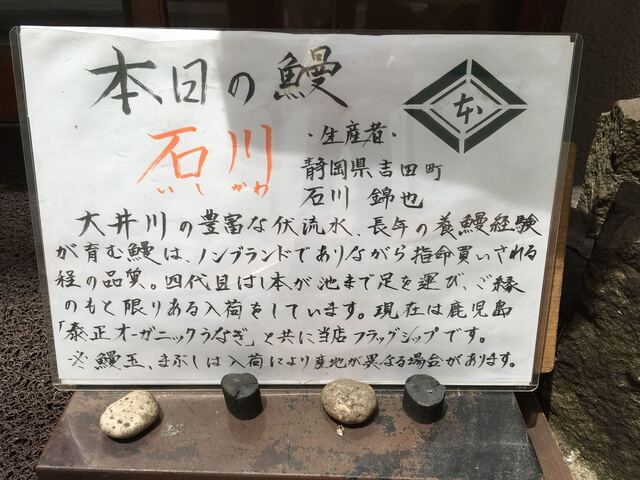 本日の鰻
本
石川
いしかわ
・生産者・
静岡県吉田町
石川 錦也
大井川の豊富な伏流水、長年の養鰻経験
が育む鰻は、ノンブランドでありながら指命買いされる
程の品質。四代目はし本が池まで足を運び、ご縁
のもと限りある入荷をしています。現在は鹿児島
「泰正オーガニックうなぎ」と共に当店フラッグシップです。
※鰻玉、まぶしは入荷により産地が異なる場合があります。